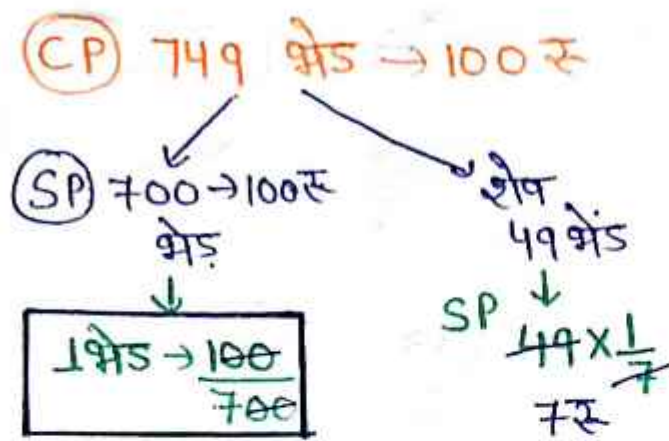 CP 749 भेड → 100 रू
SP 700 → 100रू
भेड़
1भेड → 100/700
शेष
49 भेंड
SP
49 × 1/7
7रू